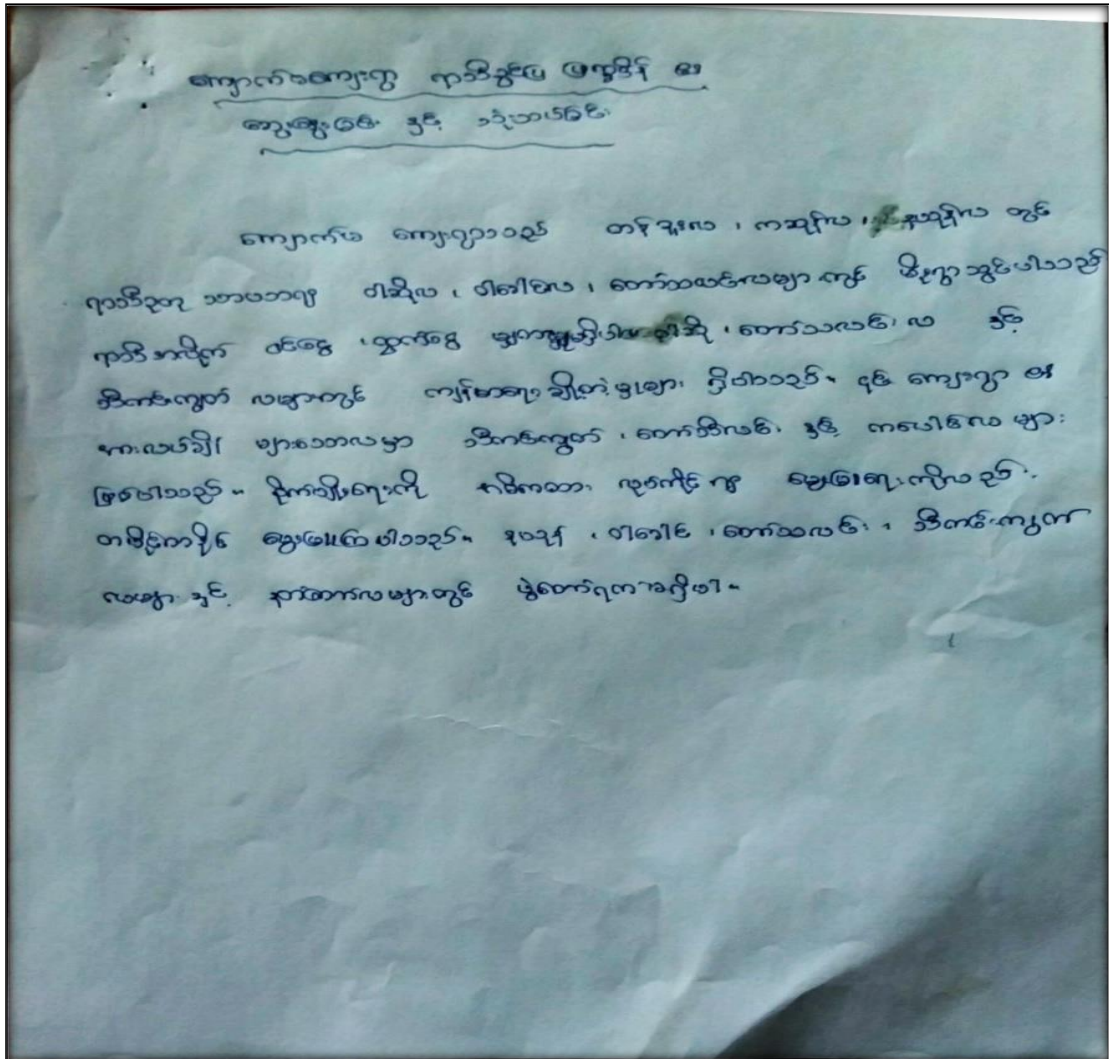 ကျောက်မကျေးရွာ ရာသီခွင်ပြ ပြက္ခဒိန် ၏
ဆွေးနွေးခြင်း နှင့် သုံးသပ်ခြင်း
ကျောက်မ ကျေးရွာသည် တန်ခူးလ ၊ ကဆုန်လ ၊ နယုန်လ တွင်
ရာသီဥတု သာမာန်ဝါဆိုလ ၊ ဝါခေါင်လ ၊ တော်သလင်းလများ တွင် မိုးရွာသွန်းပါသည်
ရာသီအလိုက် ဝင်ငွေ ၊ ထွက်ငွေ ဝါဆို ၊ တော်သလင်း လ နှင့်
သီတင်းကျွတ် လများတွင် ကျန်းမာရေး ချို့တဲ့မှုများ ရှိပါသည်။ ၎င်း ကျေးရွာ ၏
များသောလမှာ သီတင်းကျွတ် ၊ တော်သလင်း နှင့် တပေါင်းလ များ
ဖြစ်ပါသည်။ စိုက်ပျိုးရေးကို လုပ်ကိုင် မွေးမြူရေးကိုလည်း
တစ်ပိုင်တစ်နိုင် မွေးမြူကြပါသည်။ နယုန် ၊ ဝါခေါင် ၊ တော်သလင်း ၊ သီတင်းကျွတ်
လများ နှင့် နတ်တော်လများတွင် ပွဲတော်ရက် မရှိပါ။